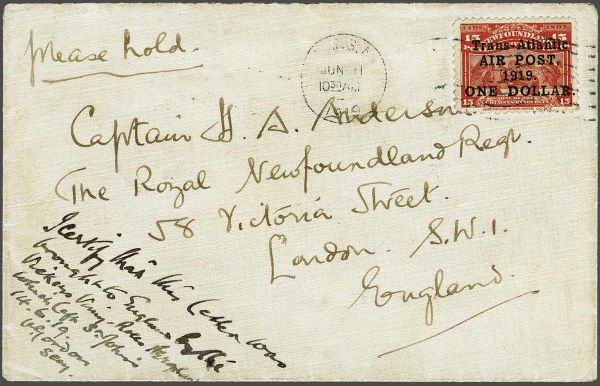 Please hold.
JUN 11
1030 AM
1919
15 NEWFOUNDLAND 15
Trans-Atlantic
AIR POST,
1919.
ONE DOLLAR.
15 15
Captain H. A. Anderson
The Royal Newfoundland Regt.
58 Victoria Street.
London. S.W.1.
England.
I certify that this letter was
brought to England by the
Vickers Vimy Rolls Aeroplane
which left St Johns
14.6.19